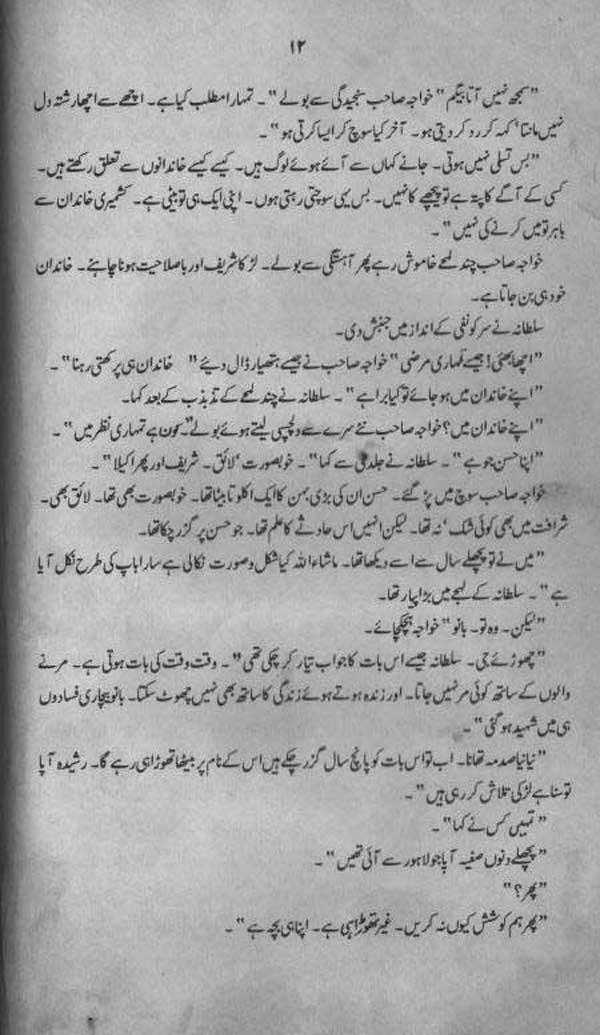 ۱۲
"سمجھ نہیں آتا بیگم" خواجہ صاحب سنجیدگی سے بولے"۔ تمہارا مطلب کیا ہے۔ اچھے سے اچھا رشتہ دل
نہیں مانتا' کہہ کر رد کر دیتی ہو۔ آخر کیا سوچ کر ایسا کرتی ہو"۔
"بس تسلی نہیں ہوتی۔ جانے کہاں سے آئے ہوئے لوگ ہیں۔ کیسے کیسے خاندانوں سے تعلق رکھتے ہیں۔
کسی کے آگے کا پتہ ہے تو پیچھے کا نہیں۔ بس یہی سوچتی رہتی ہوں۔ اپنی ایک ہی تو بیٹی ہے۔ کشمیری خاندان سے
باہر تو میں کرنے کی نہیں"۔
خواجہ صاحب چند لمحے خاموش رہے پھر آہستگی سے بولے۔ لڑکا شریف اور باصلاحیت ہونا چاہئے۔ خاندان
خود ہی بن جاتا ہے۔
سلطانہ نے سر کو نفی کے انداز میں جنبش دی۔
"اچھا بھئی! جیسے تمہاری مرضی" خواجہ صاحب نے جیسے ہتھیار ڈال دیئے" خاندان ہی پرکھتی رہنا"۔
"اپنے خاندان میں ہو جائے تو کیا برا ہے"۔ سلطانہ نے چند لمحے کے تذبذب کے بعد کہا۔
"اپنے خاندان میں؟ خواجہ صاحب نئے سرے سے دلچسپی لیتے ہوئے بولے"۔ کون ہے تمہاری نظر میں"۔
"اپنا حسن جو ہے"۔ سلطانہ نے جلدی سے کہا"۔ خوبصورت' لائق۔ شریف اور پھر اکیلا"۔
خواجہ صاحب سوچ میں پڑ گئے۔ حسن ان کی بڑی بہن کا ایک اکلوتا بیٹا تھا۔ خوبصورت بھی تھا۔ لائق بھی۔
شرافت میں بھی کوئی شک' نہ تھا۔ لیکن انہیں اس حادثے کا علم تھا۔ جو حسن پر گزر چکا تھا۔
"میں نے تو پچھلے سال سے اسے دیکھا تھا۔ ماشاءاللہ کیا شکل و صورت نکالی ہے سارا باپ کی طرح نکل آیا
ہے"۔ سلطانہ کے لہجے میں بڑا پیار تھا۔
"لیکن۔ وہ تو۔ بانو" خواجہ ہچکچائے۔
"چھوڑئے جی۔ سلطانہ جیسے اس بات کا جواب تیار کر چکی تھی"۔ وقت وقت کی بات ہوتی ہے۔ مرنے
والوں کے ساتھ کوئی مر نہیں جاتا۔ اور زندہ ہوتے ہوئے زندگی کا ساتھ بھی نہیں چھوٹ سکتا۔ بانو بیچاری فسادوں
ہی میں شہید ہو گئی"۔
"نیا نیا صدمہ تھا نا۔ اب تو اس بات کو پانچ سال گزر چکے ہیں اس کے نام پر بیٹھا تھوڑا ہی رہے گا۔ رشیدہ آپا
تو سنا ہے لڑکی تلاش کر رہی ہیں"۔
"تمہیں کس نے کہا"۔
"پچھلے دنوں صفیہ آپا جو لاہور سے آئی تھیں"۔
"پھر؟"
"پھر ہم کوشش کیوں نہ کریں۔ غیر تھوڑا ہی ہے۔ اپنا ہی بچہ ہے"۔